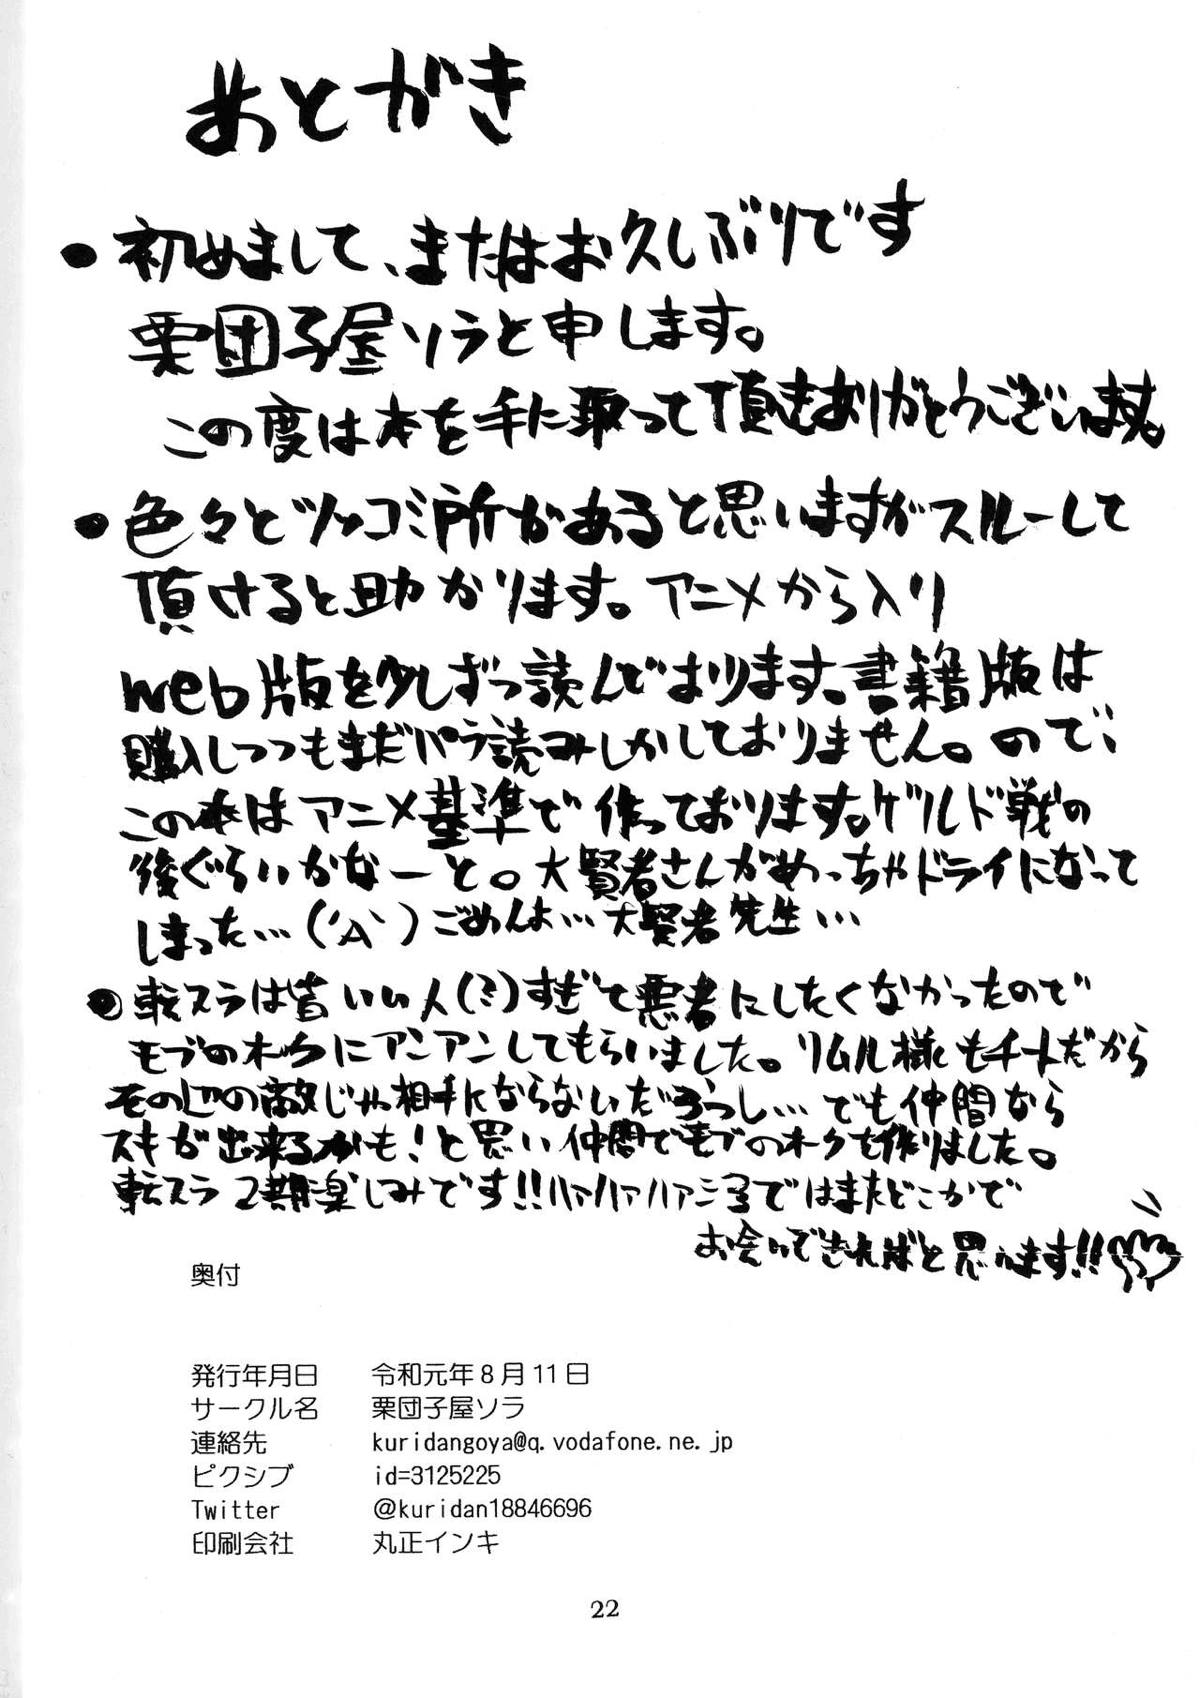 あとがき
●初めまして、またはお久しぶりです
栗団子屋ソラと申します。
この度は本を手に取って頂きありがとうございます。
●色々とツッコミ所があると思いますがスルーして
頂けると助かります。アニメから入り
web版を少しずつ読んでおります。書籍版は
購入しつつもまだパラ読みしかしておりません。ので、
この本はアニメ基準で作っております。ゲルド戦の
後ぐらいかなーと。大賢者さんがめっちゃドライになって
しまった…('A`)ごめんよ…大賢者先生…
●転スラは皆いい人(?)すぎて悪者にしたくなかったので
モブのオークにアンアンしてもらいました。リムル様もチートだから
その辺の敵じゃ相手にならないだろうし…でも仲間なら
スキが出来るかも!と思い仲間でモブのオークを作りました。
転スラ2期楽しみです!!ハァハァハァハァ ではまたどこかで
お会いできればと思います!!
奥付
発行年月日 令和元年8月11日
サークル名 栗団子屋ソラ
連絡先 kuridangoya@q.vodafone.ne.jp
ピクシブ id=3125225
Twitter @kuridan18846696
印刷会社 丸正インキ
22